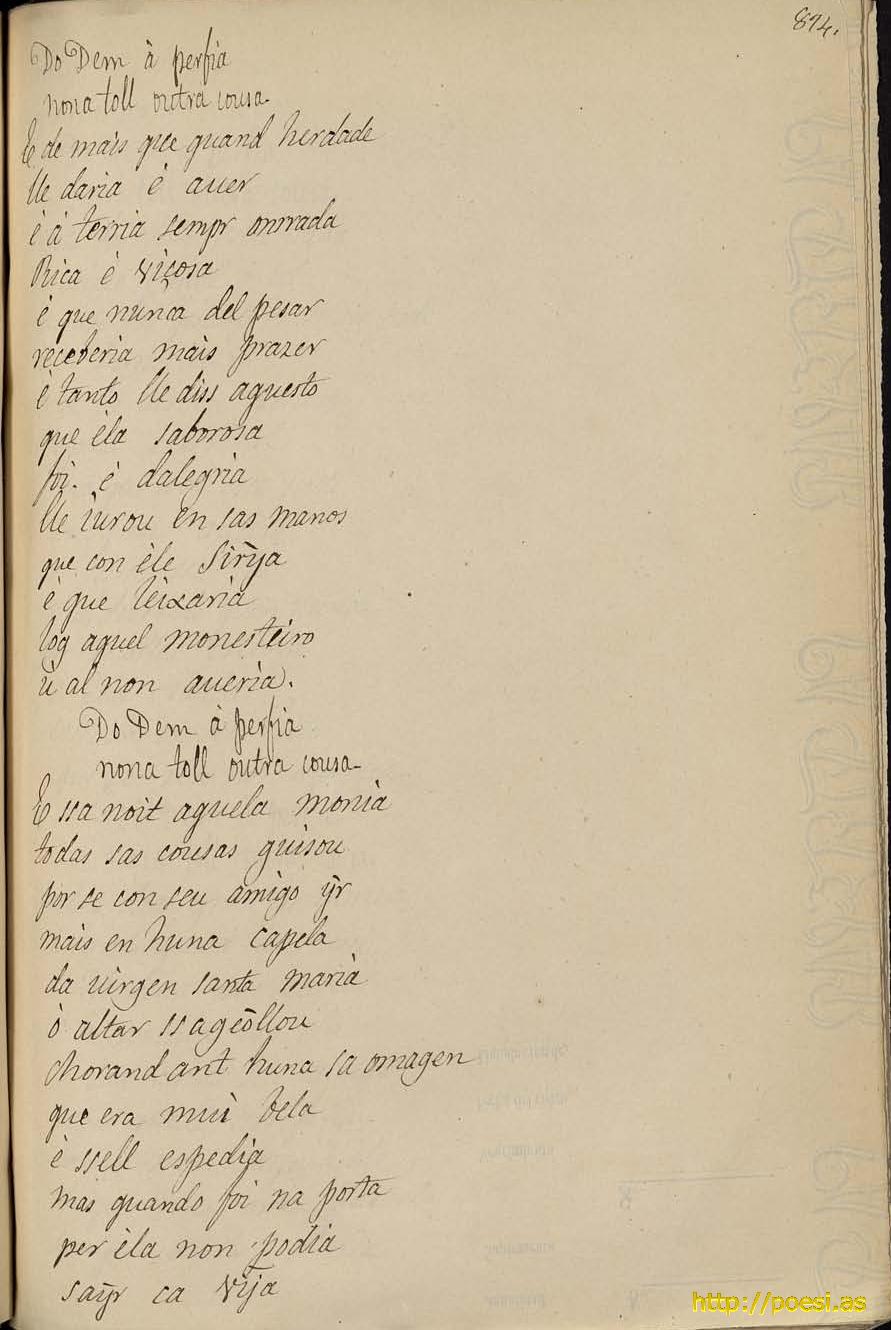 814.
Do Dem à perfia
nona toll outra cousa.
E de mais que quand herdade
lle daria è auer
è à terria sempr onrrada
Rica è viçosa
è que nunca del pesar
receberia mais prazer
è tanto lle diss aquesto
que èla saborosa
foi. è dalegria
lle iurou en sas manos
que con èle sir̃ya
è que leixaria
log aquel monesteiro
ù al non aueria.
Do Dem à perfia
nona toll outra cousa.
E ssa noit aquela monia
todas sas cousas guisou
por se con seu amigo ỹr
mais en huna capela
da uirgen santa maria
ò altar ssageõllou
chorand ant huna sa omagen
que era mui bela
è ssell espedia
mas quando foi na porta
per èla non podia
saỹr ca vĩja
http://poesi.as